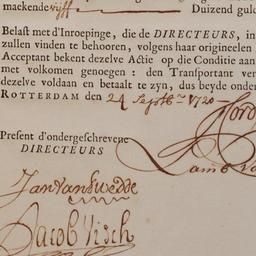 mackende vijff Duizend guld
Belast met d'Inroepinge, die de DIRECTEURS, in
zullen vinden te behooren, volgens haar origineelen
Acceptant bekent dezelve Actie op die Conditie aan
met volkomen genoegen: den Transportant ver
dezelve voldaan en betaalt te zyn, dus beyde onder
ROTTERDAM den 24 Septbr 1720
Present d'ondergeschrevene
DIRECTEURS
Jan van
Jacob Visch